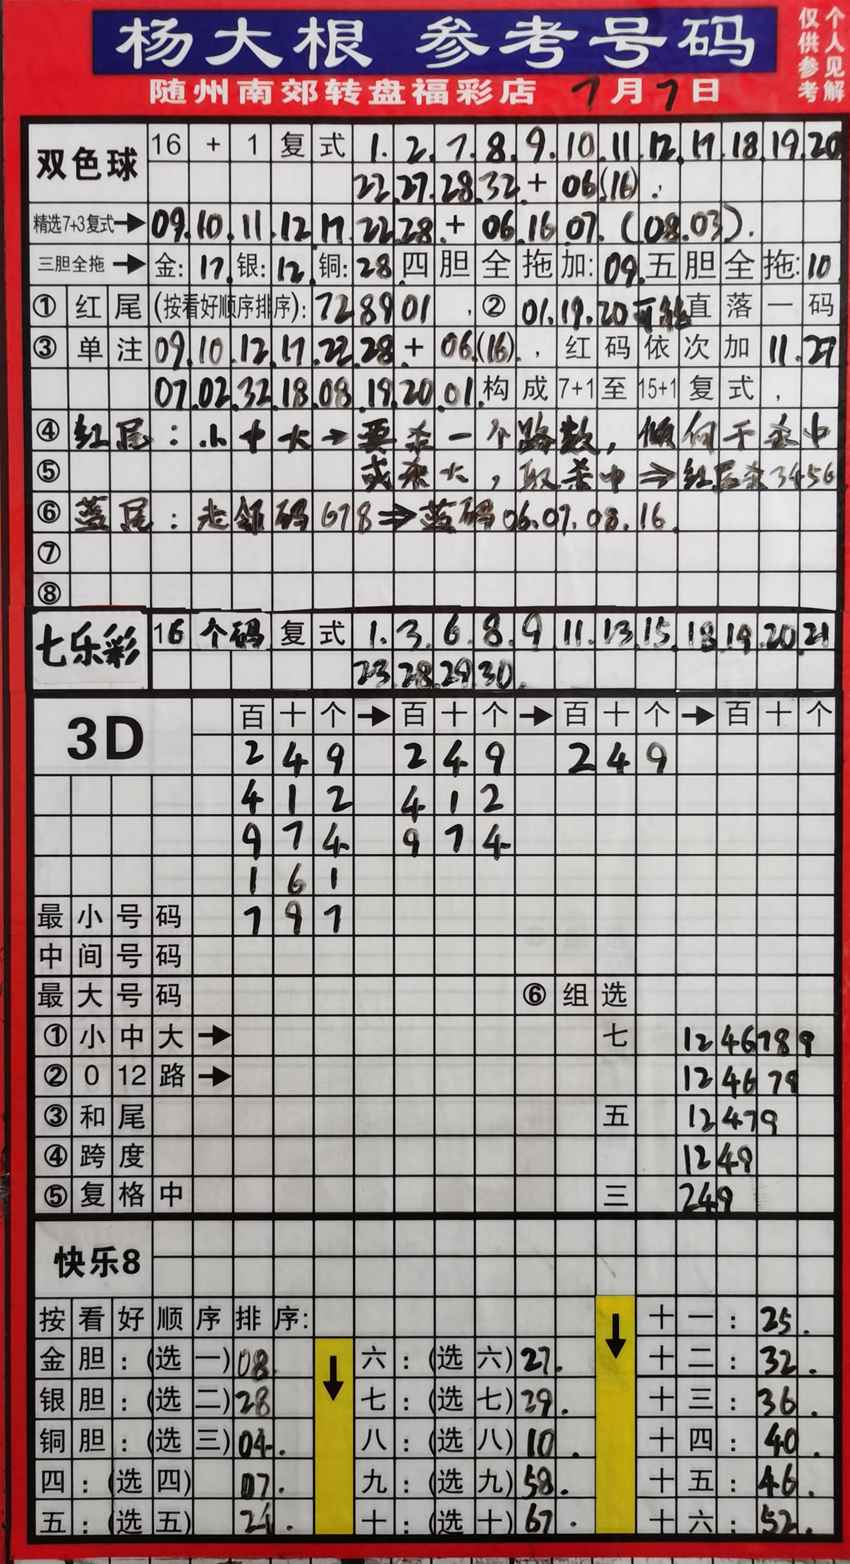 杨大根 参考号码
个人见解
仅供参考
随州南郊转盘福彩店 7月7日
双色球 16 + 1 复式 1. 2. 7. 8. 9. 10. 11. 12. 17. 18. 19. 20
22. 27. 28. 32. + 06.(16).
精选7+3复式→ 09. 10. 11. 12. 17. 22. 28. + 06. 16. 07. (08. 03).
三胆全拖→ 金: 17. 银: 12. 铜: 28. 四胆全拖加: 09. 五胆全拖: 10
① 红尾 (按看好顺序排序): 728901 , ② 01. 19. 20 可能直落一码
③ 单注 09. 10. 12. 17. 22. 28 + 06.(16). , 红码依次加 11. 27
07. 02. 32. 18. 08. 19. 20. 01. 构成7+1至15+1复式 ,
④ 红尾: 小中大→要杀一个路数, 倾向于杀中
⑤ 或杀大, 取杀中⇒红尾杀3456
⑥ 蓝尾: 码678⇒蓝码06. 07. 08. 16.
⑦
⑧
七乐彩 16 个码 复式 1. 3. 6. 8. 9 11. 13. 15. 18. 19. 20. 21
23. 28. 29. 30.
3D 百十个→百十个→百十个→百十个
249 249 249
412 412
974 974
161
最小号码 797
中间号码
最大号码 ⑥ 组选
①小中大→ 七 1246789
②012路→ 124679
③和尾 五 12479
④跨度 1249
⑤复格中 三 249
快乐8
按看好顺序排序: ↓ 十一: 25.
金胆: (选一) 08. ↓ 六: (选六) 27. 十二: 32.
银胆: (选二) 28 七: (选七) 29. 十三: 36.
铜胆: (选三) 04. 八: (选八) 10. 十四: 40.
四: (选四) 07. 九: (选九) 58. 十五: 46.
五: (选五) 十: (选十) 67. 十六: 52.